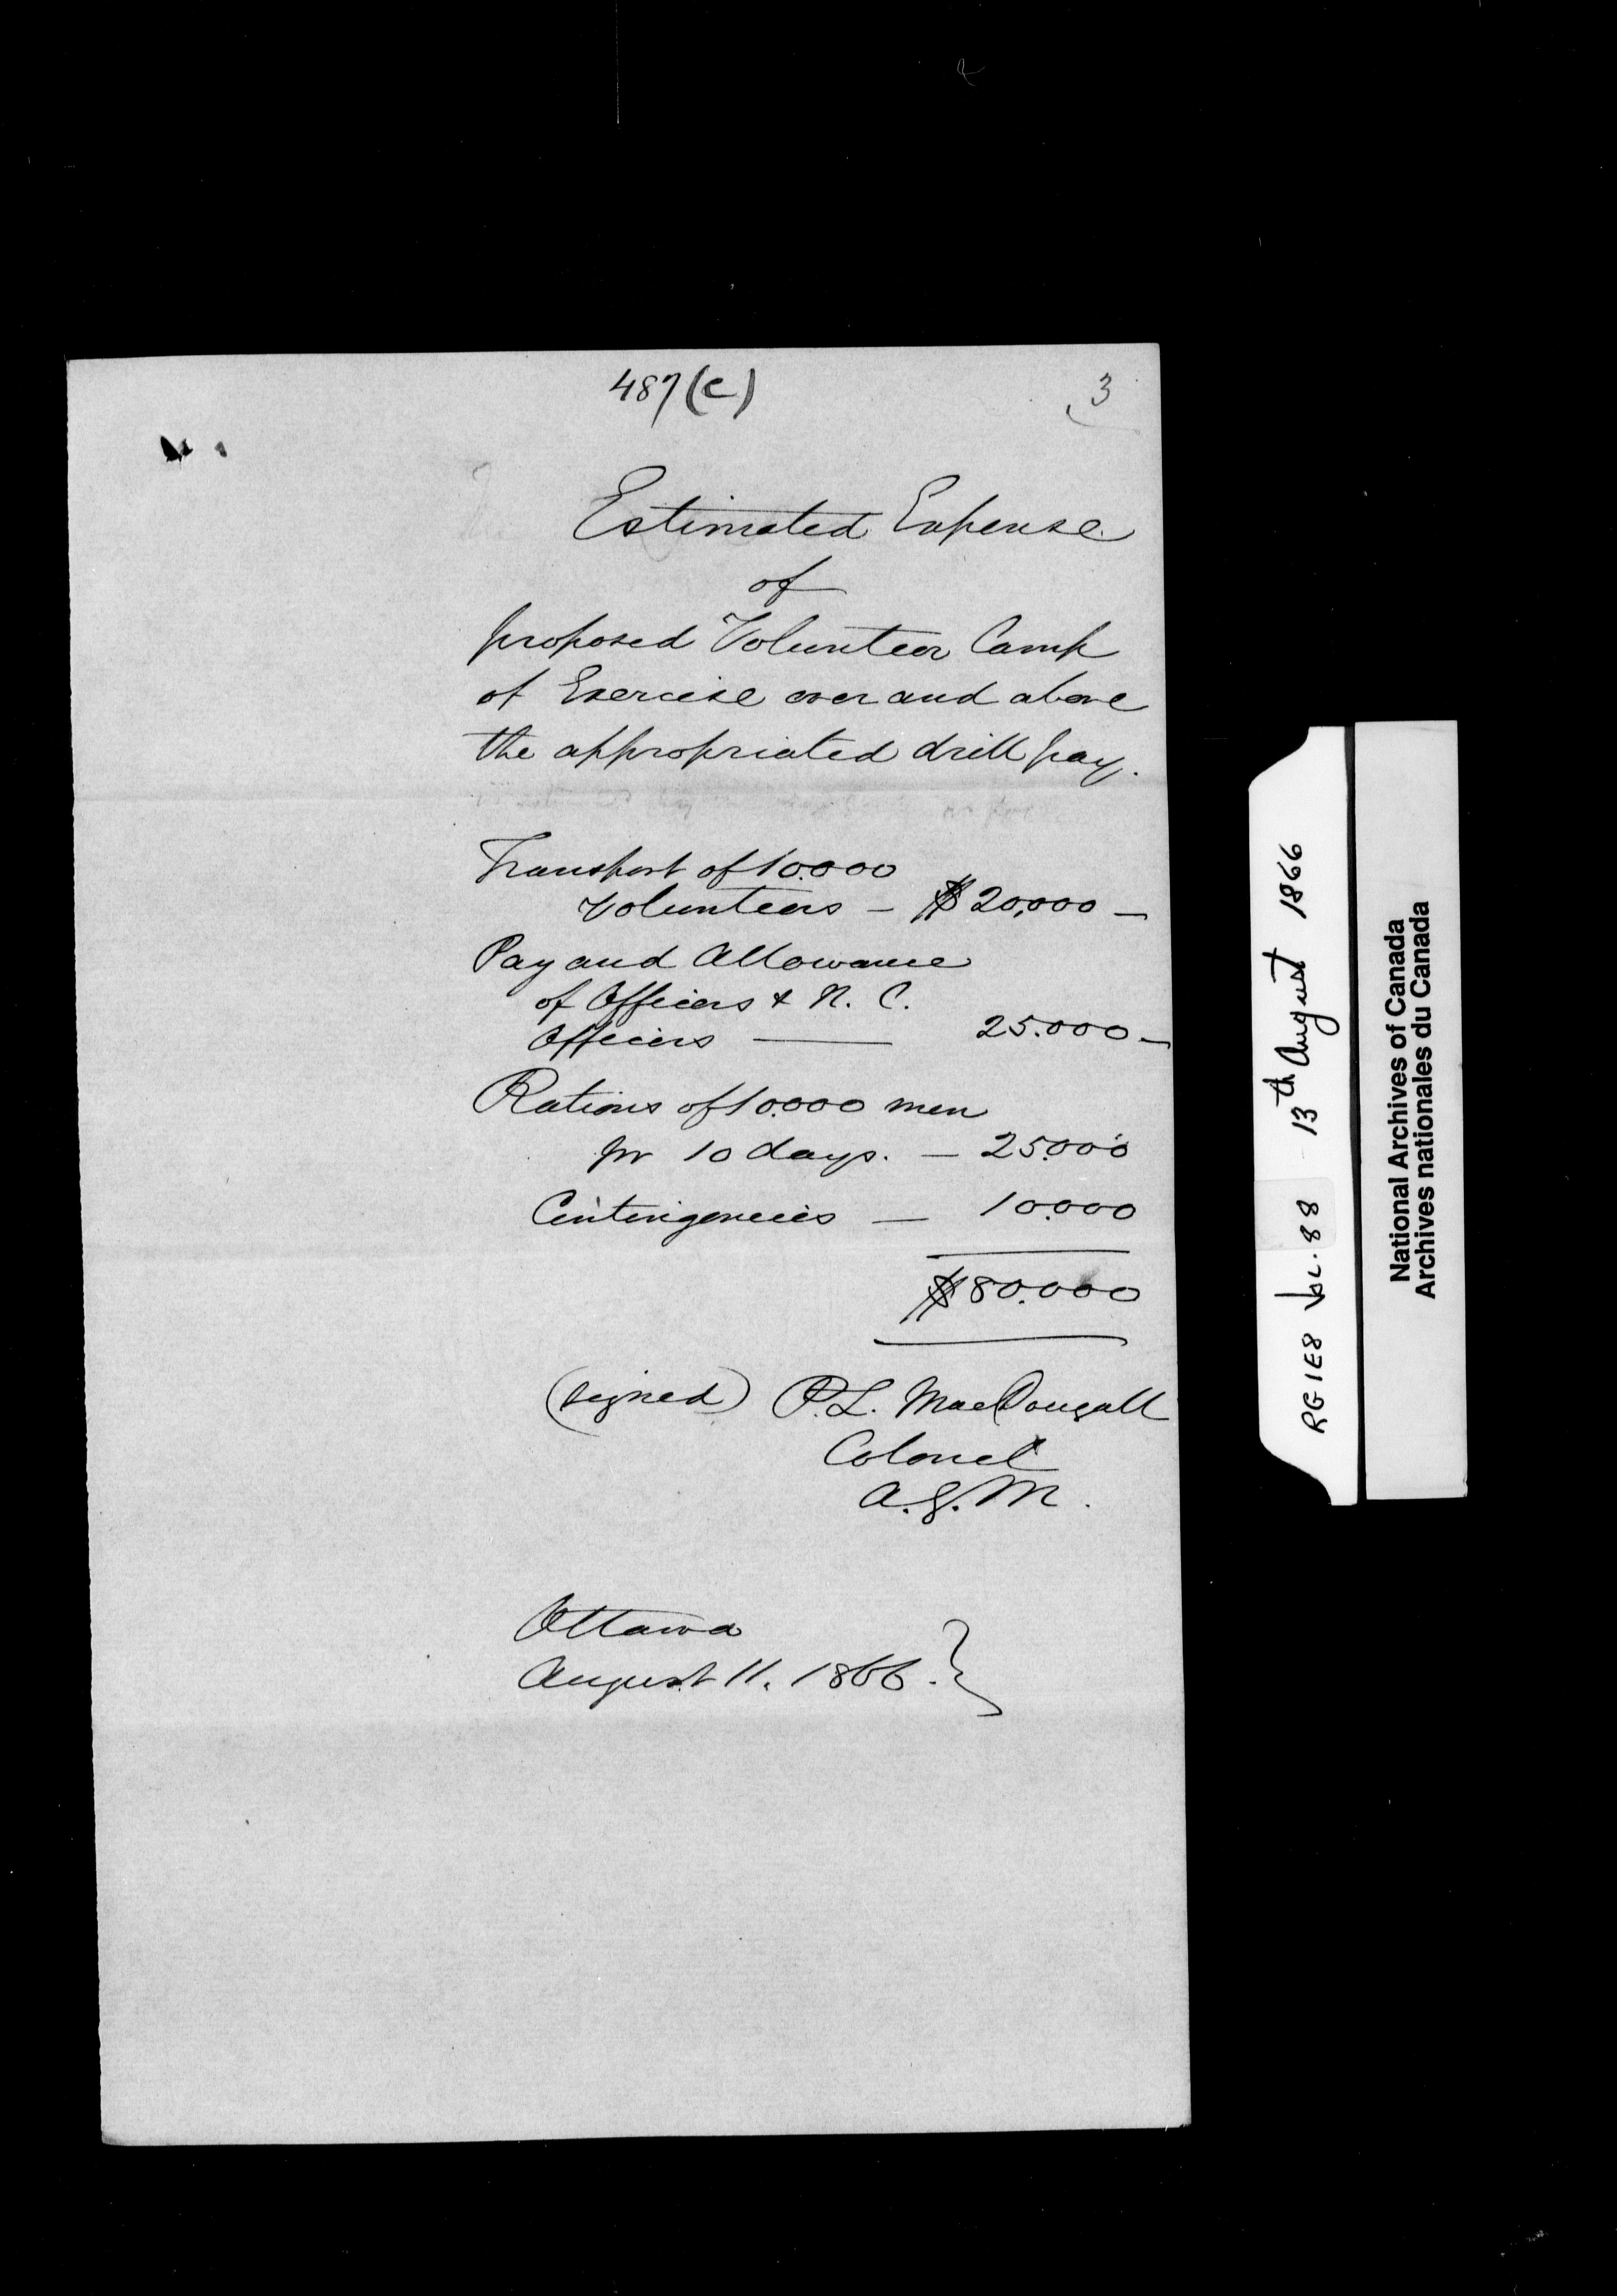 487(c)
3
Estimated Expense
of
proposed Volunteer Camp
of Exercise over and above
the appropriated drill pay.
Transport of 10.000
Volunteers — $20,000 —
Pay and Allowance
of Officers & N. C.
Officers —— 25.000 —
Rations of 10.000 men
for 10 days. — 25.000
Contingencies — 10.000
$80.000
(signed) P.L. MacDougall
Colonel
A.G.M.
Ottawa
August 11. 1866.}
RG1E8 VOL. 88 13th August 1866
National Archives of Canada
Archives nationales du Canada